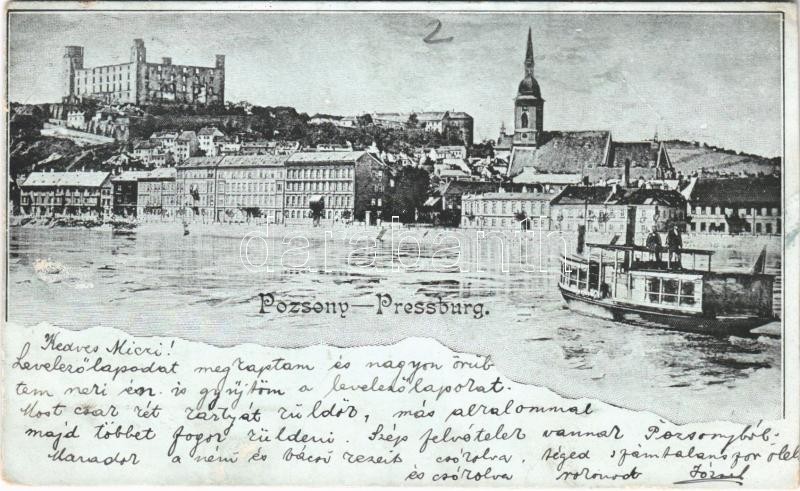 2
darabanth
Pozsony—Pressburg.
Kedves Miczi!
Levelezőlapodat megkaptam és nagyon örül
tem neki én is gyűjtöm a levelezőlapokat.
Most csak két kártyát küldök, más alkalommal
majd többet fogok küldeni. Szép felvételek vannak Pozsonyból.
Maradok a néni és bácsi kezeit csókolva, téged számtalanszor ölel
és csókolva rokonod József